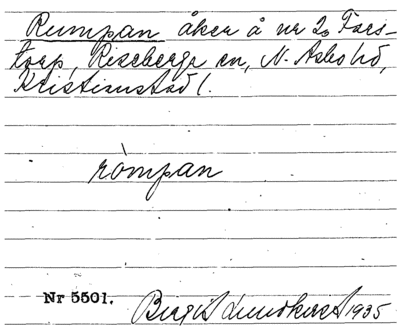 Rumpan åker å nr 2, Fars-
torp, Riseberga sn, N. Asbo hd,
Kristianstad l.
ròmpan
Nr 5501. Birgit Lundkvist 1935